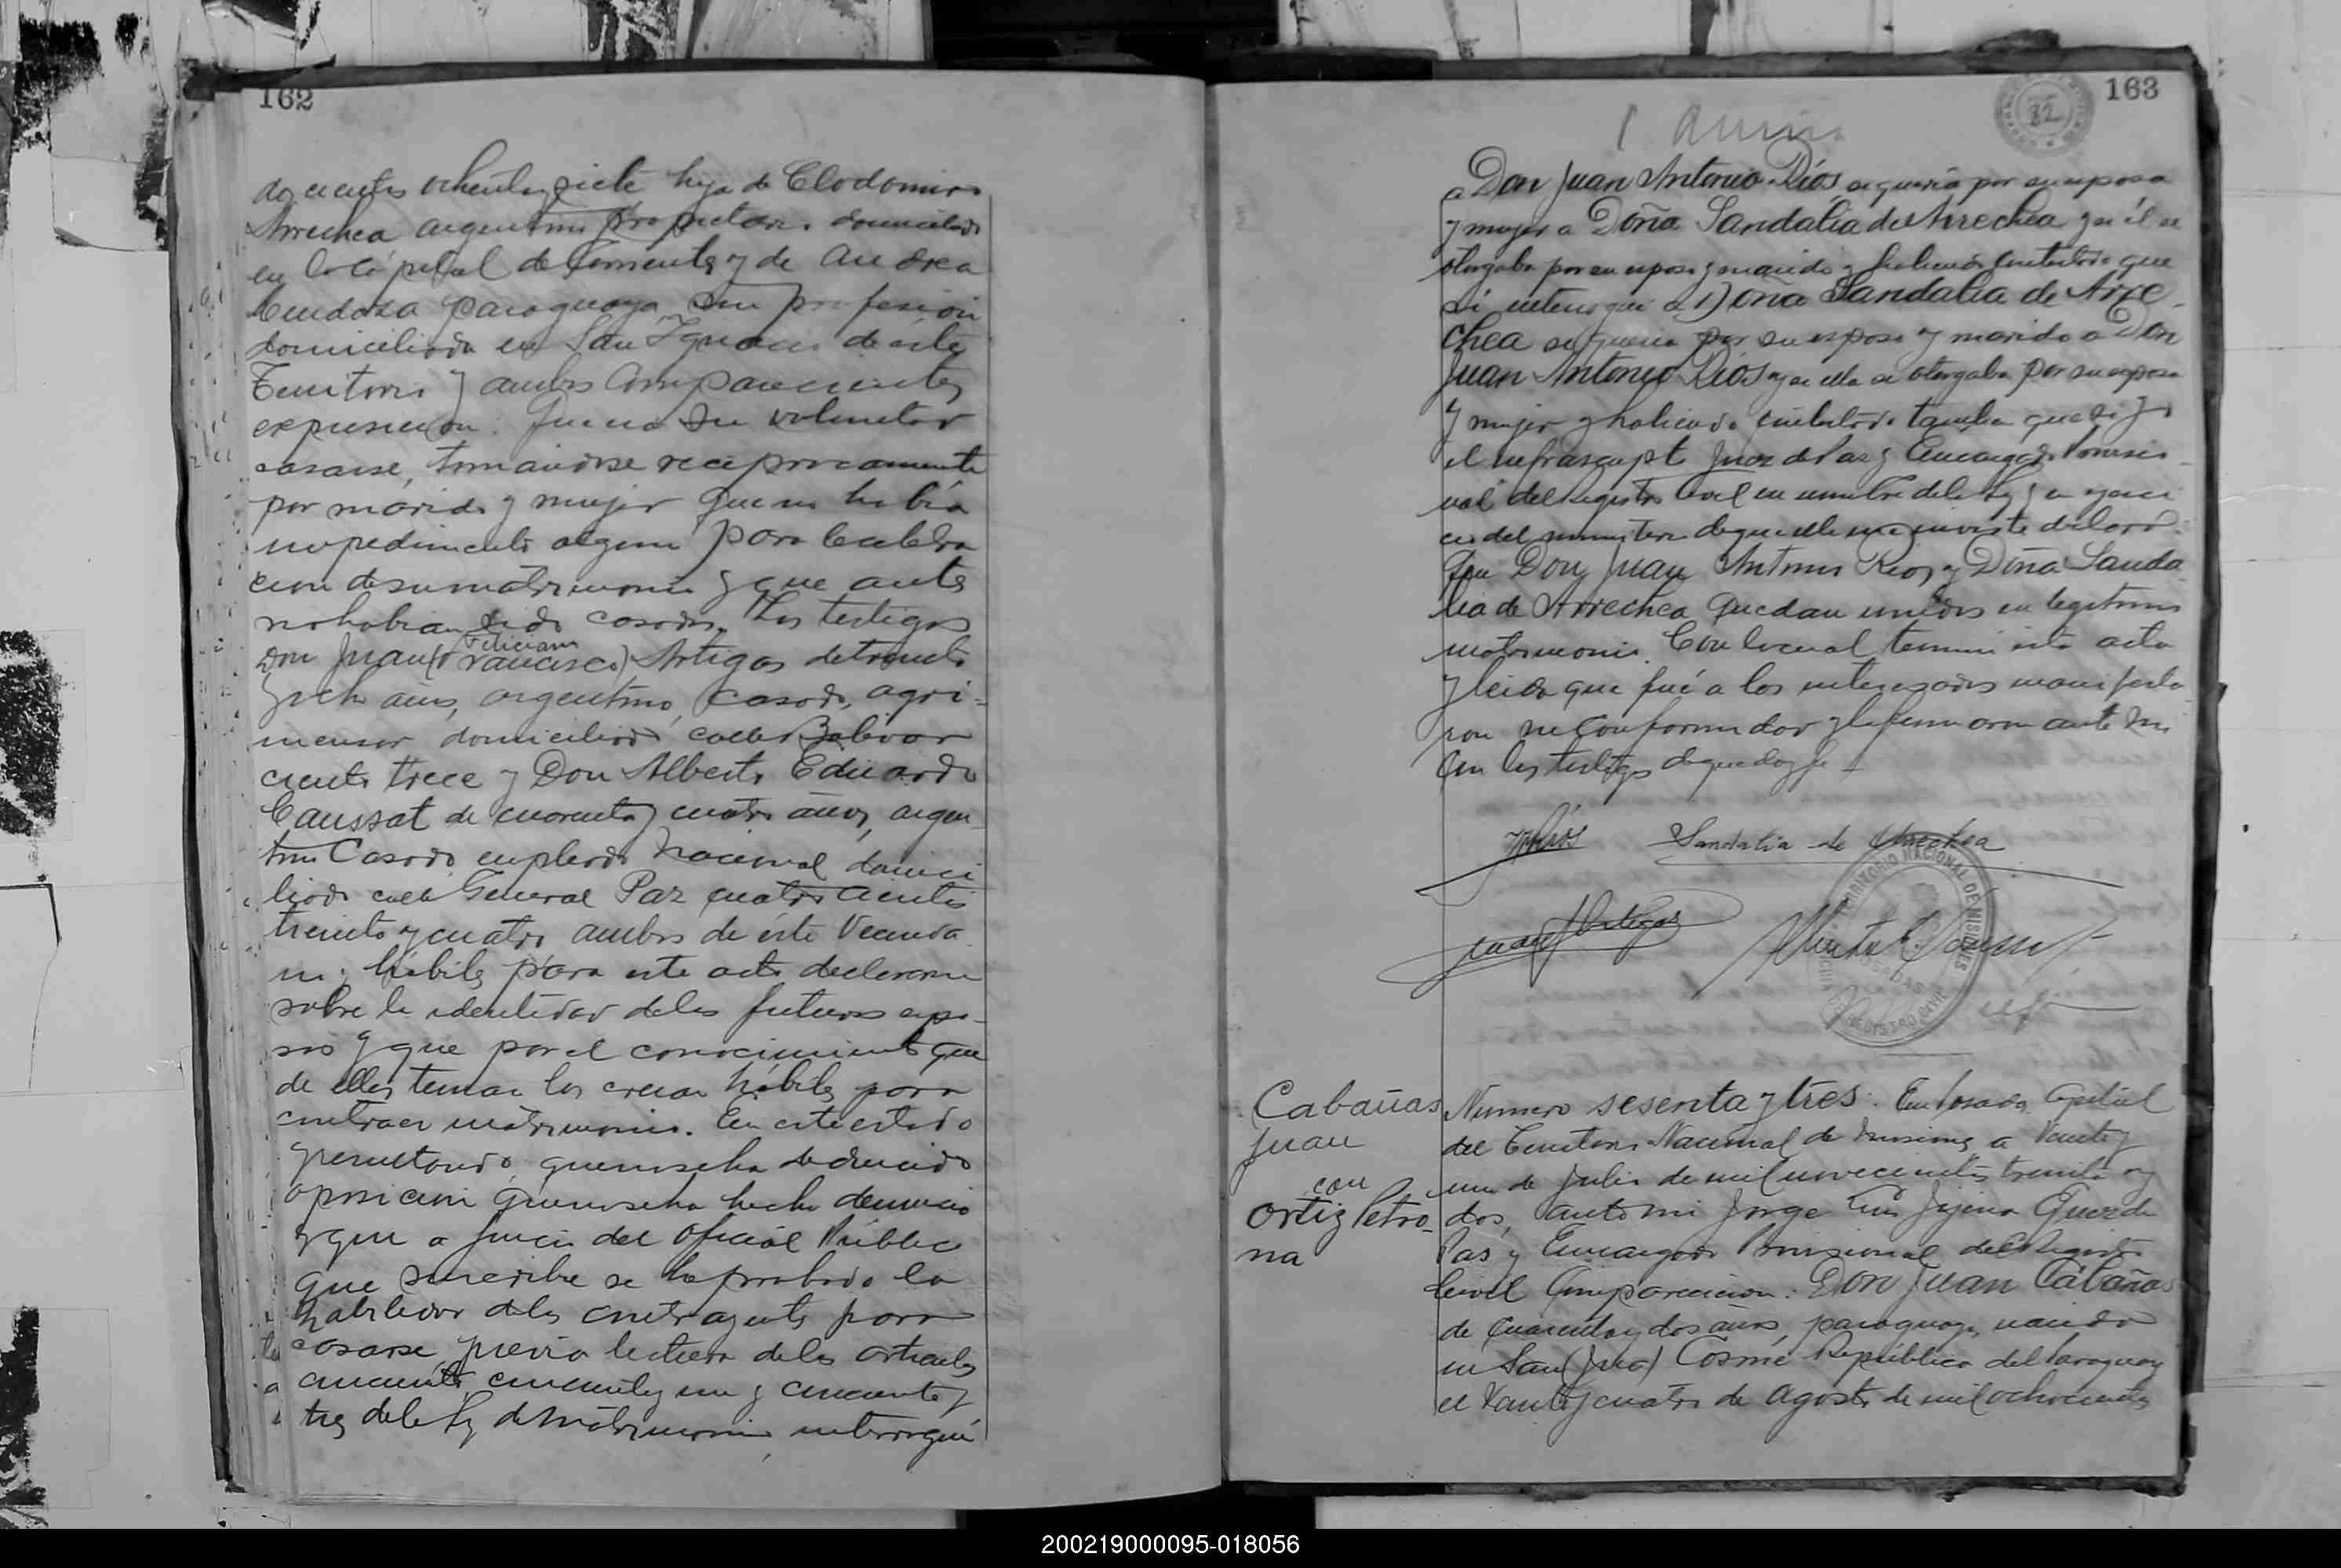 162
docientos ochentaysiete hija de Clodomiro
Arrechea argentino propietario domiciliado
en la Capital de Corrientes y de Andrea
Mendoza paraguaya sin profesion
domiciliada en San Ignacio de este
Territorio y ambos comparecientes
expusieron: que era su voluntad
casarse, tomandose reciprocamente
por marido y mujer que no habia
impedimento alguno para la celebra
cion de su matrimonio y que antes
no habian sido casados. Los testigos
Feliciano
Don Juan (Francisco) Artigas de treinta
y ocho años, argentino, casado, agri-
mensor domiciliado calle Bolivar
ciento trece y Don Alberto Eduardo
Caussat de cuarenta y cuatro años, argen-
tino casado empleado nacional domici
liado calle General Paz cuatro cientos
treinta y cuatro ambos de este vecinda
rio; habiles para este acto declararon
sobre la identidad de los futuros espo-
sos y que por el conocimiento que
de ellos tenian los creian habiles para
contraer matrimonio. En este estado
y resultando que no se ha deducido
oposicion que no se ha hecho denuncia
y que a juicio del oficial Público
que suscribe se ha probado la
habilidad de los contrayentes para
casarse previa lectura de los articulos
cincuenta, cincuenta y uno y cincuenta y
tres de la Ley de Matrimonio interrogué
163
82
a Don Juan Antonio Ríos, si queria por su esposa
y mujer a Doña Sandalia de Arrechea y si él se
otorgaba por su esposo y marido y habiendo contestado que
si interrogué a Doña Sandalia de Arre-
chea si queria por su esposo y marido a Don
Juan Antonio Ríos y si ella se otorgaba por su esposa
y mujer y habiendo contestado tambien que si yo
el infrascripto Juez de Paz y Encargado Provisio-
nal del Registro Civil en nombre de la Ley y en ejerci
cio del ministerio de que ella me inviste declaró:
Que Don Juan Antonio Rios y Doña Sanda
lia de Arrechea quedan unidos en legitimo
matrimonio. Con lo cual terminó esta acta
y leida que fué a los interesados manifesta
ron su conformidad y la firmaron ante mi
con los testigos de que doy fe –
JARíos Sandalia de Arrechea
Juan F Artigas Alberto E Caussat
TERRITORIO NACIONAL DE MISIONES
POSADAS
REGISTRO CIVIL
Cabañas
Juan
con
Ortiz Petro-
na
Numero sesenta y tres: En Posadas Capital
del Territorio Nacional de Misiones a veinte y
uno de Julio de mil novecientos treinta y
dos, ante mi Jorge Luis Jijena Juez de
Paz y Encargado Provisional del Registro
Civil Comparecieron: Don Juan Cabañas
de cuarenta y dos años, paraguayo, nacido
en San (Jua) Cosme República del Paraguay
el veinte y cuatro de Agosto de mil ochocientos
200219000095-018056